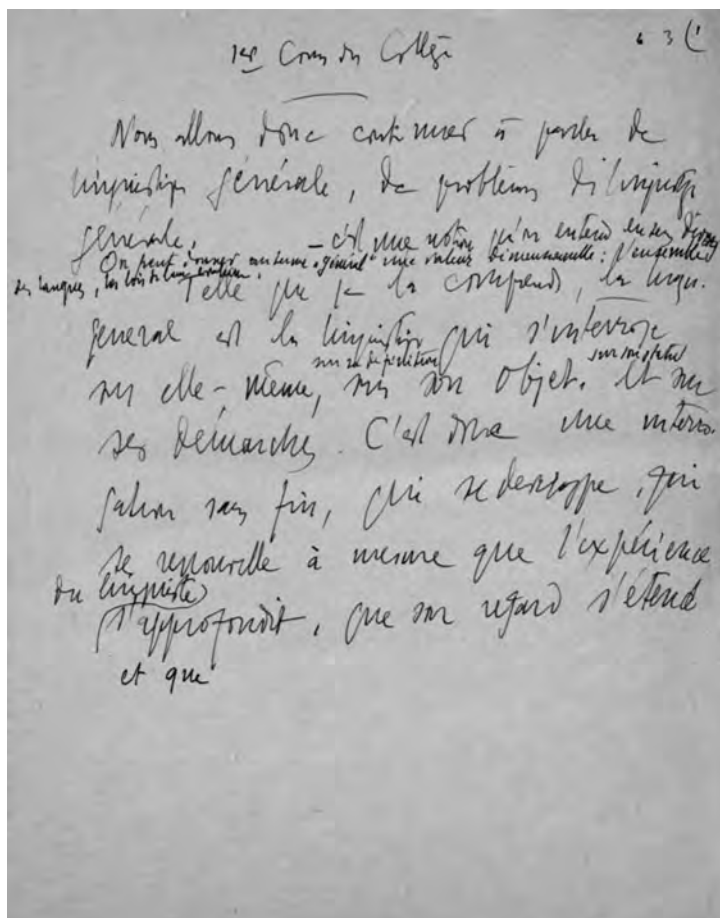 1er Cours du Collège
Nous allons donc continuer à parler de
linguistique générale, de problèmes de linguistique
générale, – c'est une notion qu'on entend en sens divers
On peut donner au terme « général » une valeur dimensionnelle : l'ensemble
des langues, les lois de leur évolution.
Telle que je la comprends, la ling.
général est la linguistique qui s'interroge
sur sa définition sur son statut
sur elle-même, sur son objet. et sur
ses démarches. C'est donc une interro-
gation sans fin, qui se développe, qui
se renouvelle à mesure que l'expérience
du linguiste
s'approfondit, que son regard s'étend
et que